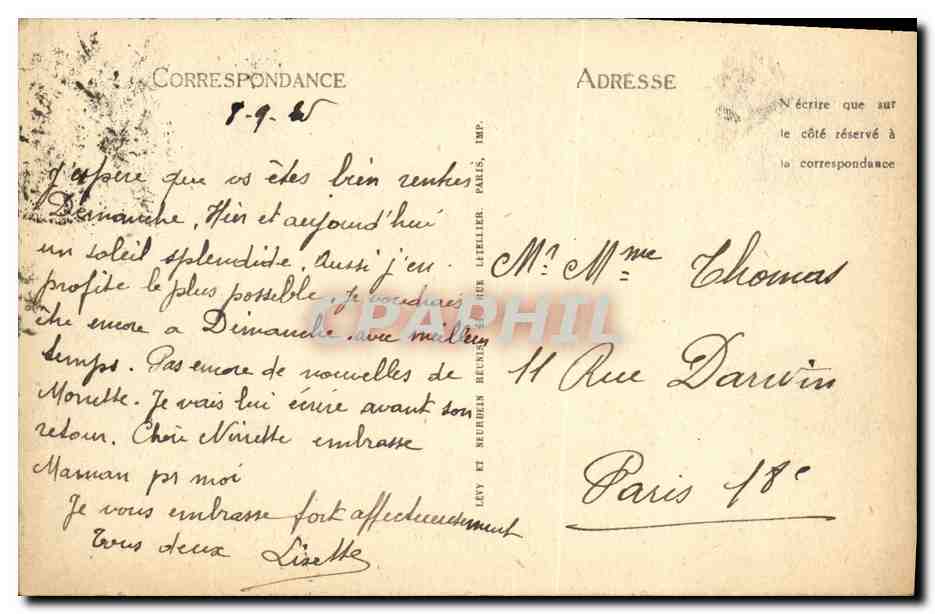 CORRESPONDANCE
ADRESSE
N'écrire que sur
le côté réservé à
la correspondance
8-9-25
J'espère que vs êtes bien rentrés
Dimanche. Hier et aujourd'hui
un soleil splendide. Aussi j'en
profite le plus possible. Je voudrais
être encore a Dimanche avec meilleur
temps. Pas encore de nouvelles de
Monette. Je vais lui écrire avant son
retour. Chère Ninette embrasse
Maman pr moi
Je vous embrasse fort affectueusement
tous deux Lisette
LÉVY ET NEURDEIN RÉUNIS, RUE LETELLIER, PARIS, IMP.
Mr Mme Thomas
11 Rue Darwin
Paris 18e
CPAPHIL